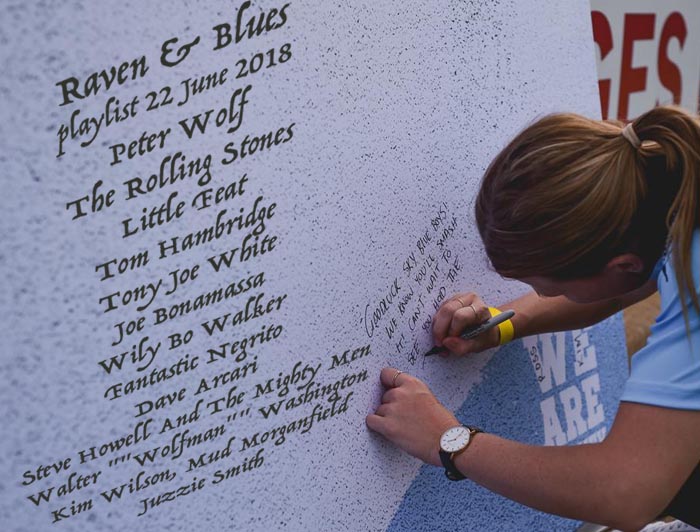 Raven & Blues
playlist 22 June 2018
Peter Wolf
The Rolling Stones
Little Feat
Tom Hambridge
Tony Joe White
Joe Bonamassa
Wily Bo Walker
Fantastic Negrito
Dave Arcari
Steve Howell And The Mighty Men
Walter ""Wolfman"" Washington
Kim Wilson, Mud Morganfield
Juzzie Smith
GOODLUCK SKY BLUE BOYS!
WE KNOW YOU'LL SMASH
IT! CAN'T WAIT TO
SEE YOU
THE
GES
WE
ARE